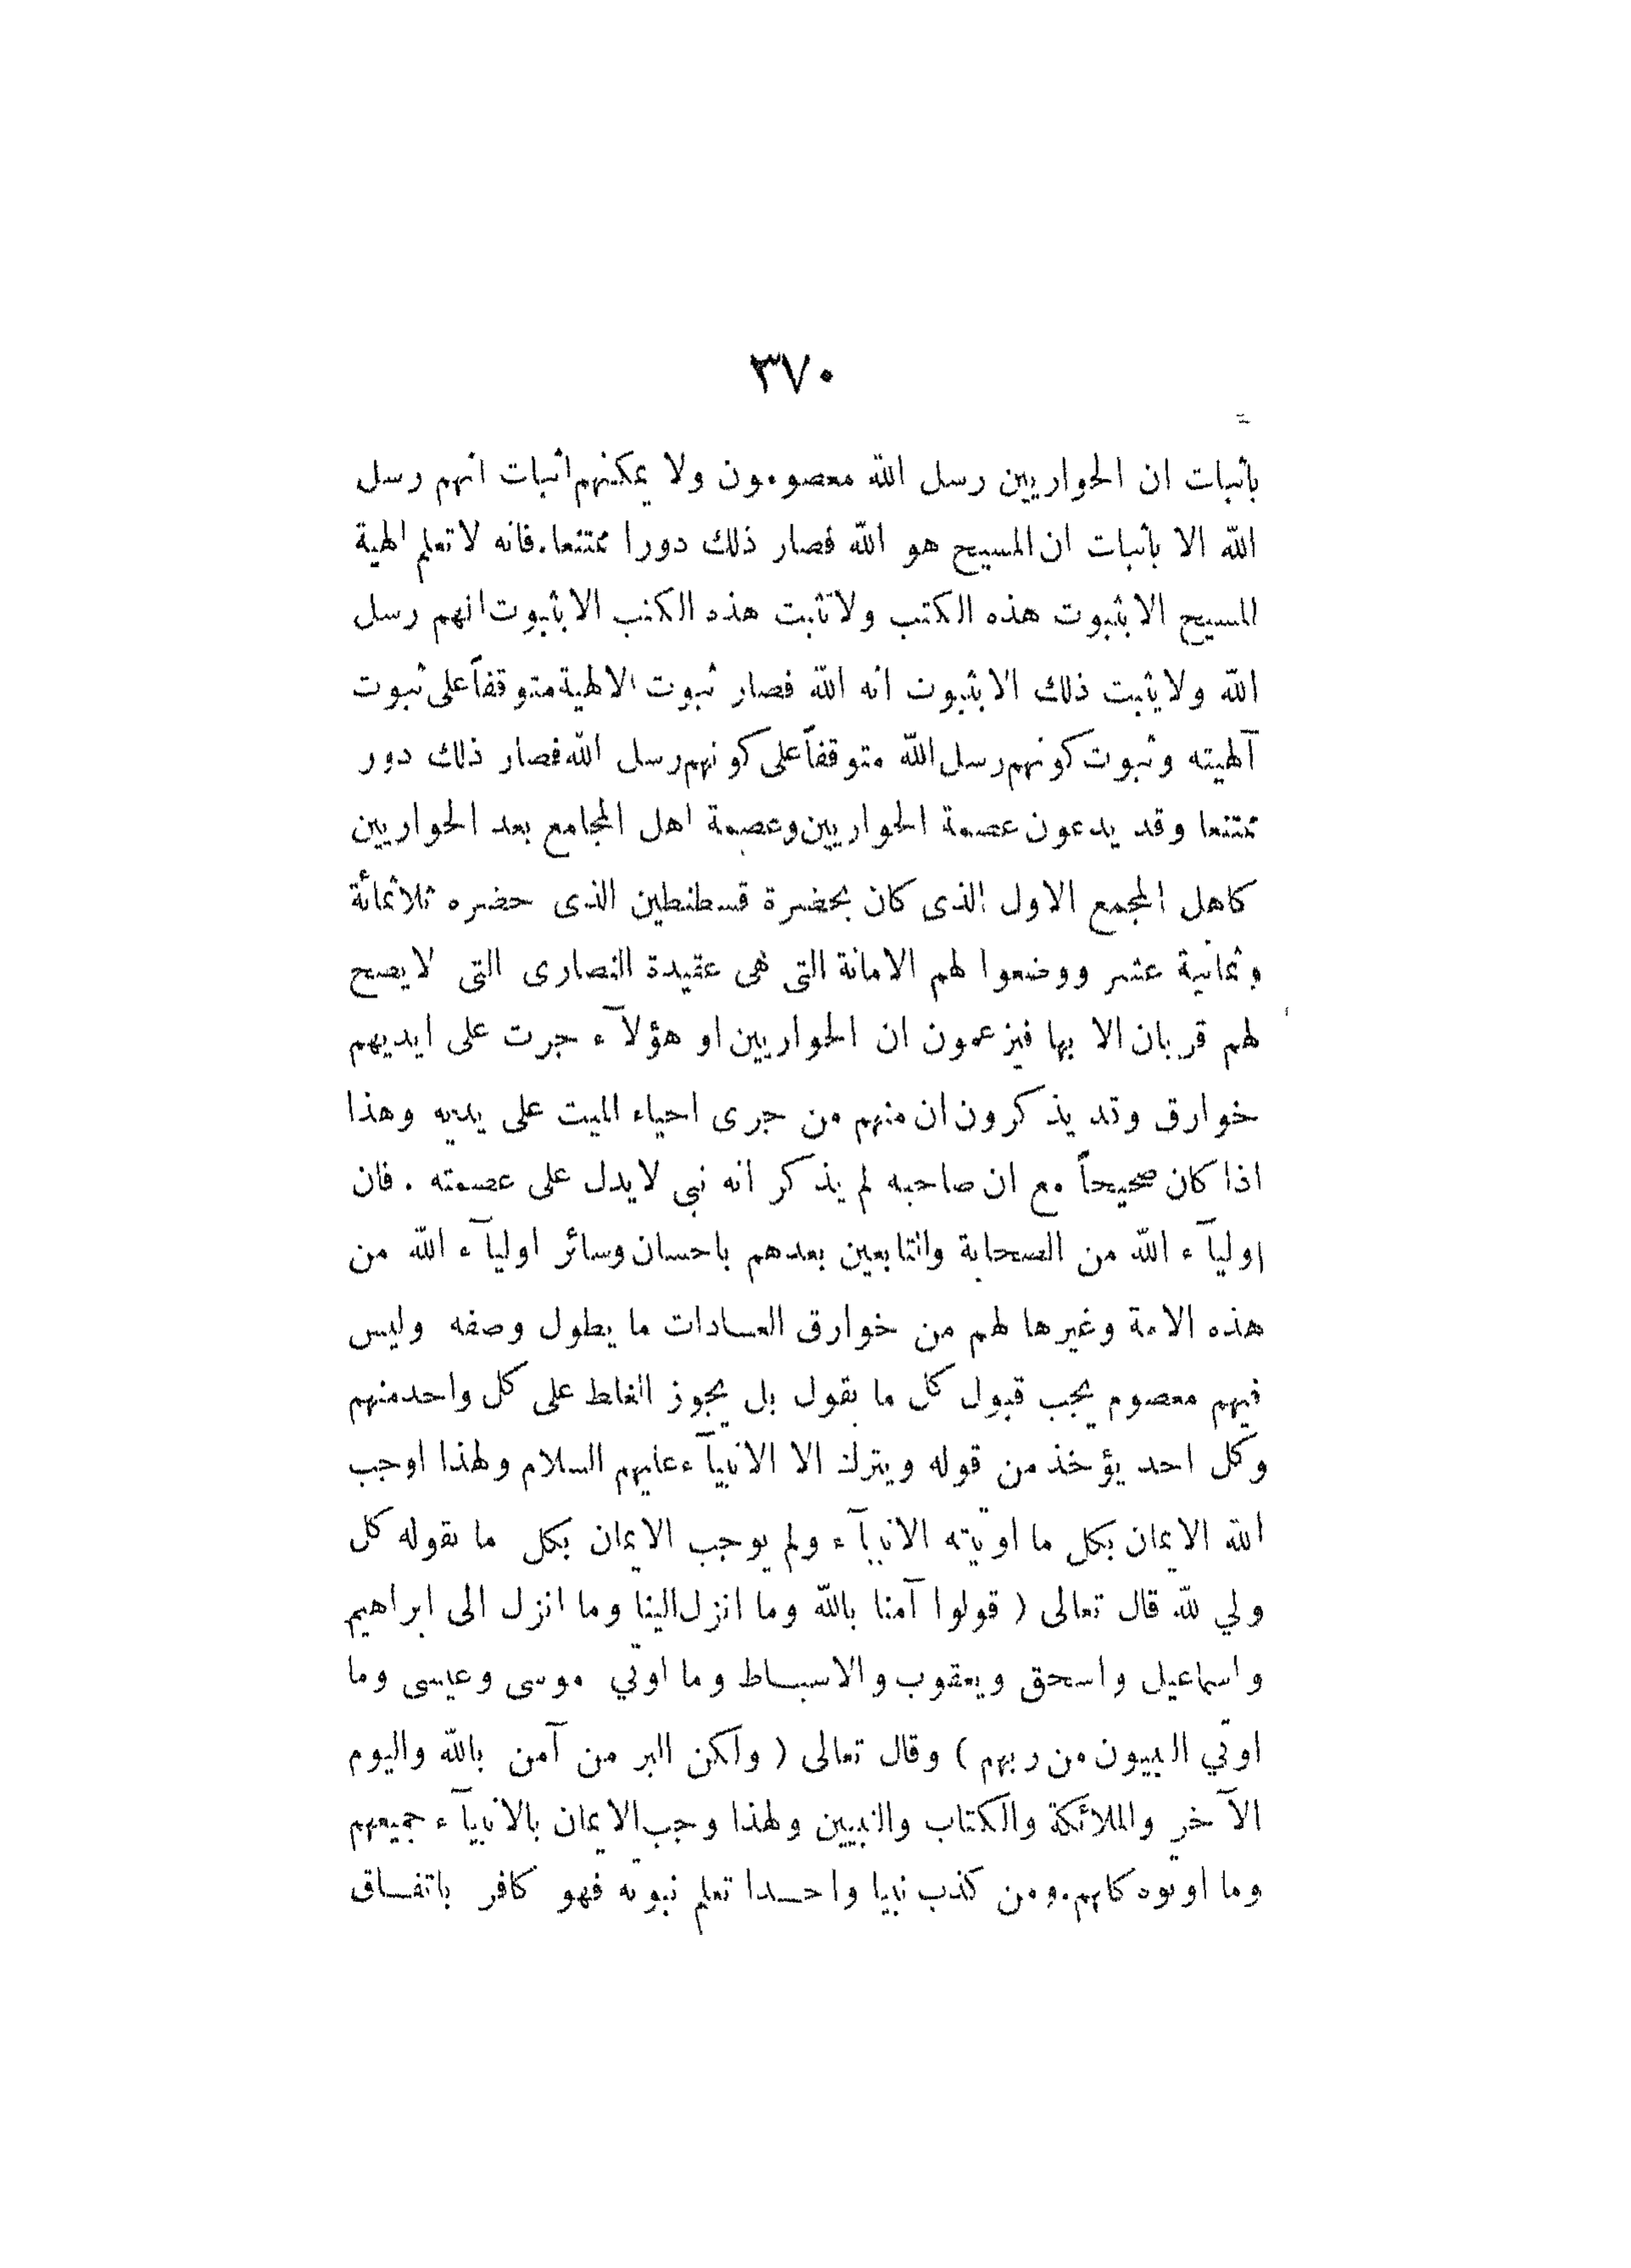 ٣٧٠
باثبات ان الحواريين رسل الله معصومون ولا يمكنهم اثبات انهم رسل
الله الا باثبات ان المسيح هو الله فصار ذلك دورا ممتنعا. فانه لا تعلم الهية
المسيح الا بثبوت هذه الكتب ولا تثبت هذه الكتب الا بثبوت انهم رسل
الله ولا يثبت ذلك الا بثبوت انه الله فصار ثبوت الالهية متوقفاً على ثبوت
آلهيته وثبوت كونهم رسل الله متوقفاً على كونهم رسل الله فصار ذلك دور
ممتنعا وقد يدعون عصمة الحواريين وعصمة اهل المجامع بعد الحواريين
كاهل المجمع الاول الذى كان بحضرة قسطنطين الذى حضره ثلاثمائة
وثمانية عشر ووضعوا لهم الامانة التى هى عقيدة النصارى التى لا يصح
لهم قربان الا بها فيزعمون ان الحواريين او هؤلآء جرت على ايديهم
خوارق وقد يذكرون ان منهم من جرى احياء الميت على يديه وهذا
اذا كان صحيحاً مع ان صاحبه لم يذكر انه نبى لا يدل على عصمته . فان
اوليآء الله من الصحابة والتابعين بعدهم باحسان وسائر اوليآء الله من
هذه الامة وغيرها لهم من خوارق العادات ما يطول وصفه وليس
فيهم معصوم يجب قبول كل ما يقول بل يجوز الغلط على كل واحد منهم
وكل احد يؤخذ من قوله ويترك الا الانبيآء عليهم السلام ولهذا اوجب
الله الايمان بكل ما اوتيته الانبيآء ولم يوجب الايمان بكل ما يقوله كل
ولي لله قال تعالى ( قولوا آمنا بالله وما انزل الينا وما انزل الى ابراهيم
واسماعيل واسحق ويعقوب والاسباط وما اوتي موسى وعيسى وما
اوتي النبيون من ربهم ) وقال تعالى ( ولكن البر من آمن بالله واليوم
الآخر والملائكة والكتاب والنبيين ولهذا وجب الايمان بالانبيآء جميعهم
وما اوتوه كلهم. ومن كذب نبيا واحدا تعلم نبوته فهو كافر باتفاق